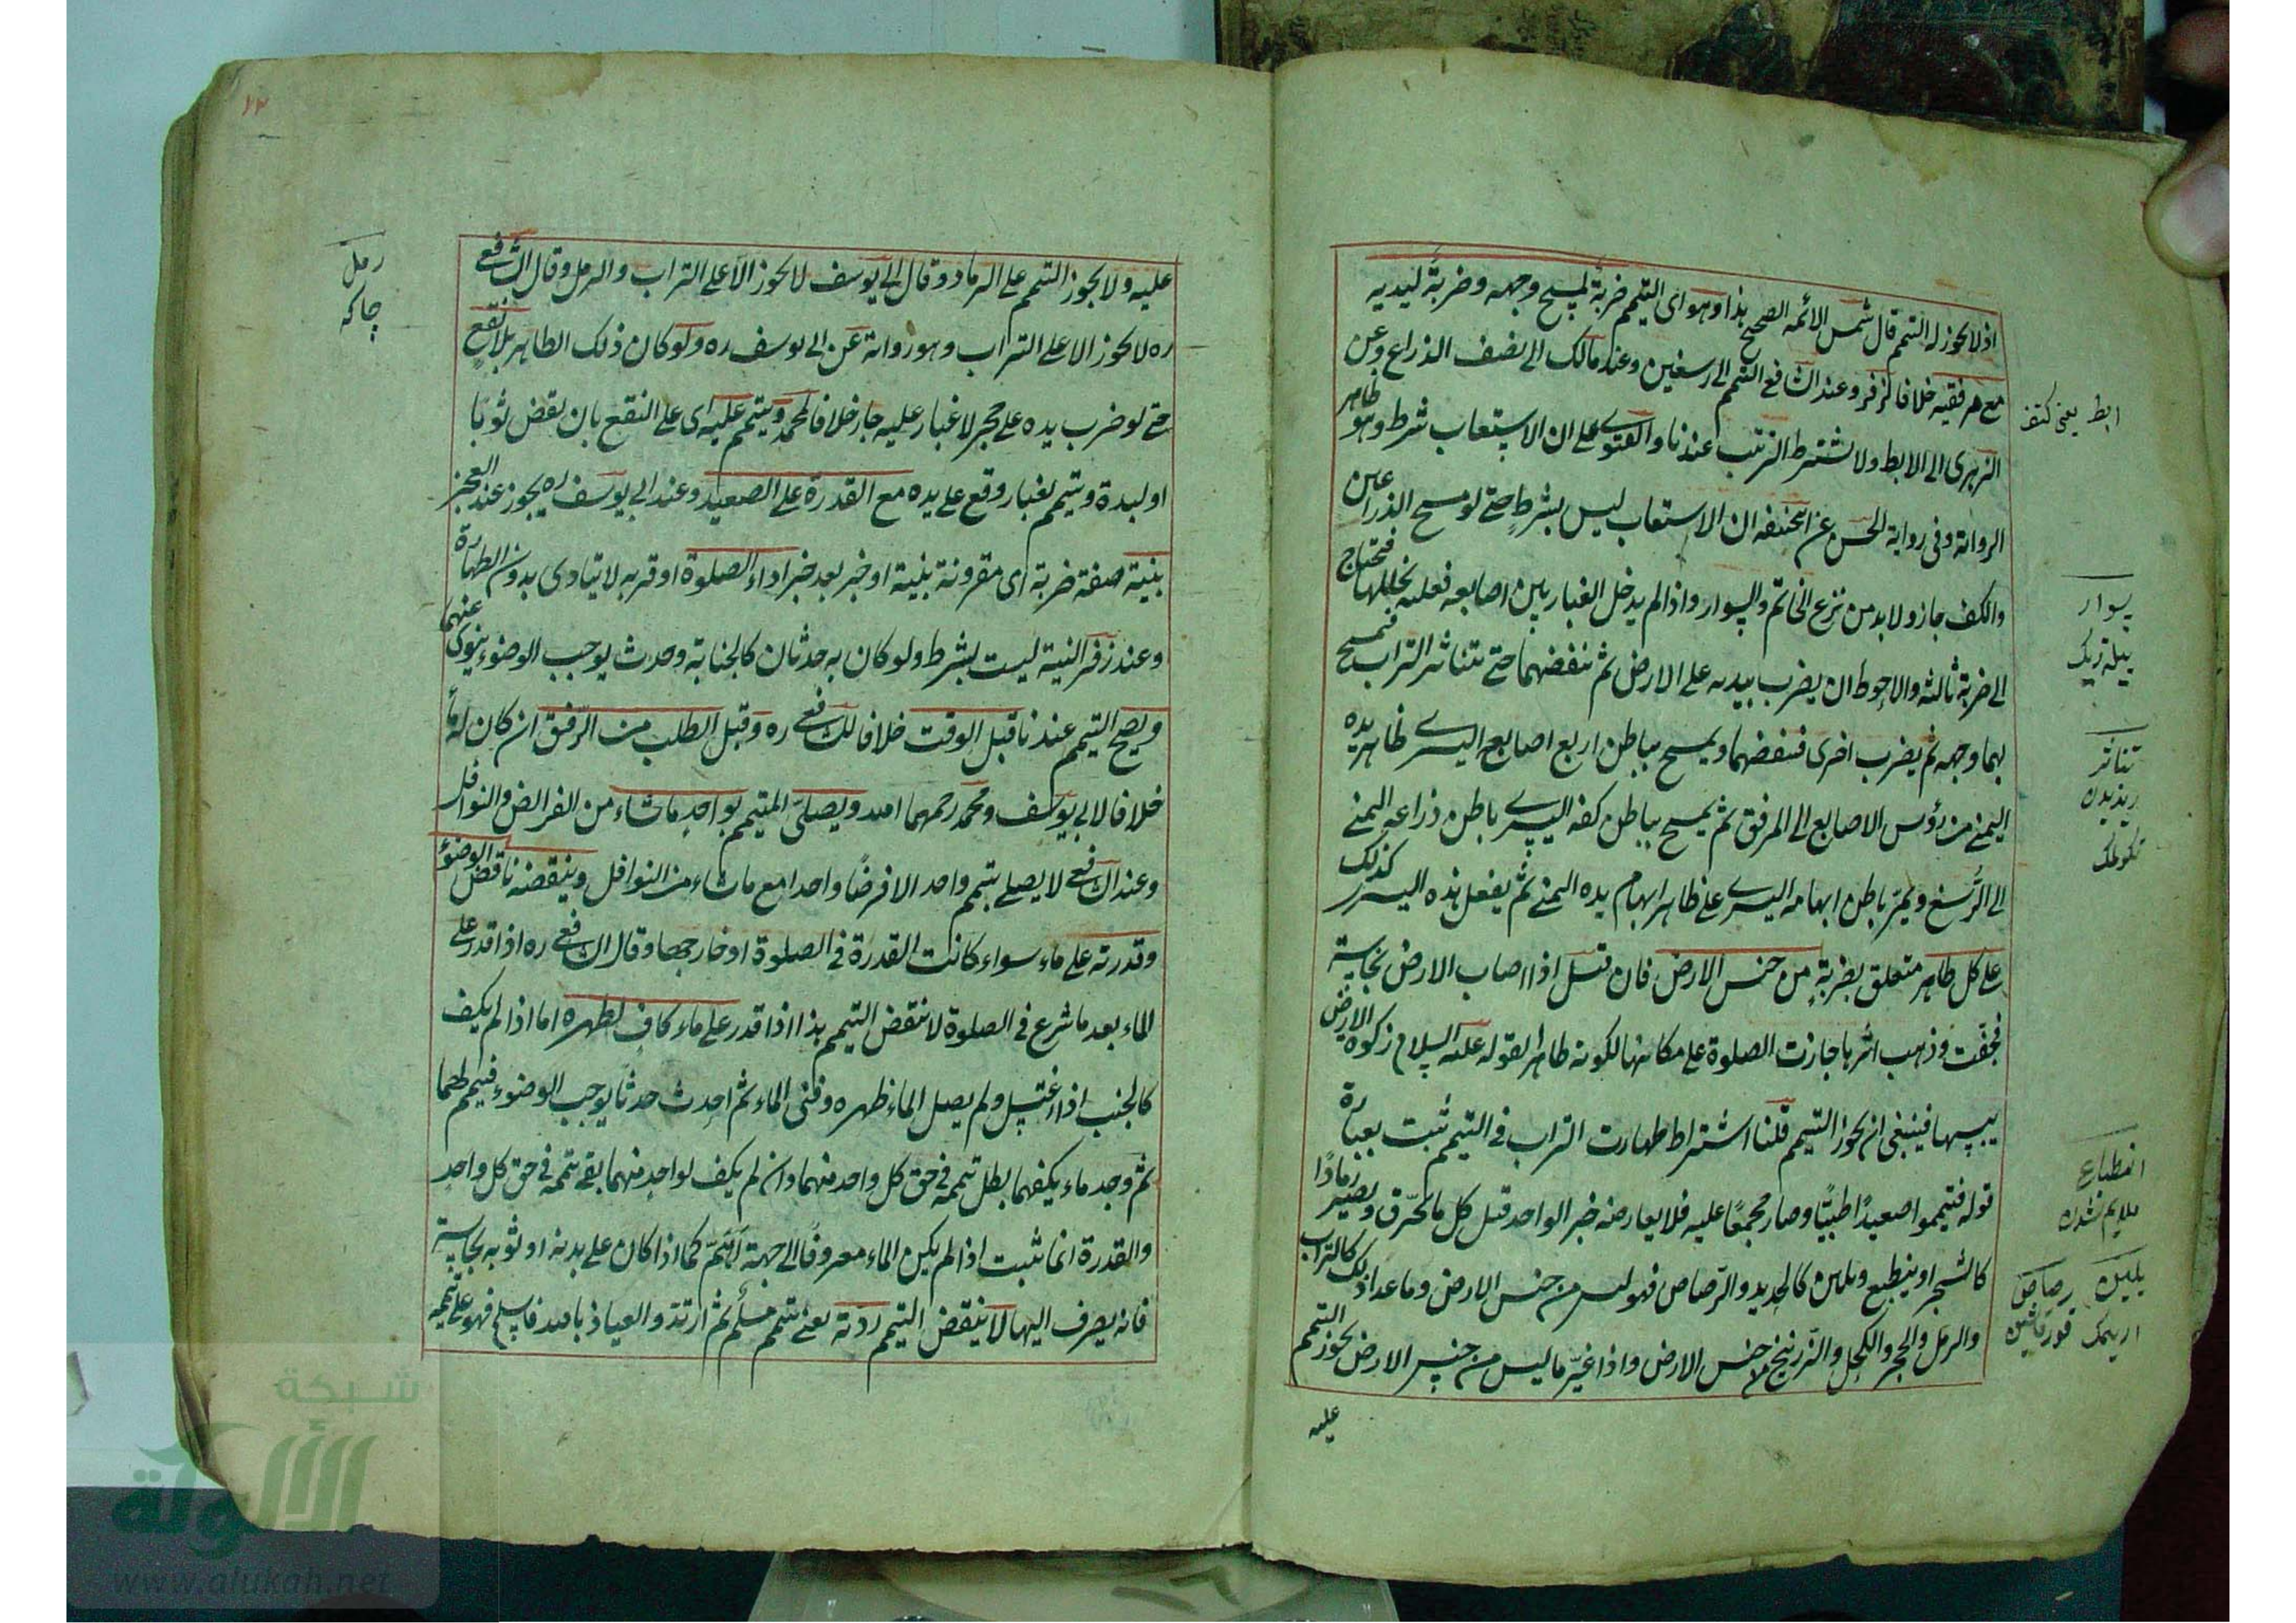 اذ لا يجوز له التيمم قال شمس الائمه الصحيح هذا وهو اى التيمم ضربة لمسح وجهه وضربة ليديه
مع مرفقيه خلافا لزفر وعند الشافعى التيمم الى رسغين وعند مالك الى نصف الذراع وعن
الزهرى الى الابط ولا يشترط الترتيب عندنا والفتوى على ان الاستيعاب شرط وهو ظاهر
الرواية وفى رواية الحسن عن ابيحنيفه ان الاستيعاب ليس بشرط حتى لو مسح الذراعين
والكف جاز ولا بد من نزع الخاتم والسوار واذا لم يدخل الغبار بين اصابعه فعليه تخليلها فيحتاج
الى ضربة ثالثة والاحوط ان يضرب بيديه على الارض ثم ينفضهما حتى يتناثر التراب فيمسح
بهما وجهه ثم يضرب اخرى فينفضهما ويمسح بباطن اربع اصابعه اليسرى ظاهر يده
اليمنى من رؤس الاصابع الى المرفق ثم يمسح بباطن كفه اليسرى باطن ذراعه اليمنى
الى الرسغ ويمر باطن ابهامه اليسرى على ظاهر ابهام يده اليمنى ثم يفعل بيده اليسرى كذلك
على كل طاهر متعلق بضربة من جنس الارض فان قيل اذا اصاب الارض نجاسة
فجفت وذهب اثرها جازت الصلوة على مكانها لكونه طاهرا لقوله عليه السلام زكوة الارض
يبسها فينبغى ان يجوز التيمم قلنا اشتراط طهارت التراب فى التيمم ثبت بعبارة
قوله فتيمموا صعيدا طيبا وصار مجمعا عليه فلا يعارضه خبر الواحد قيل كل ما يحترق ويصير رمادا
كالشجر او ينطبع ويلين كالحديد والرصاص فهو ليس من جنس الارض وما عدا ذلك كالتراب
والرمل والحجر والكحل والزرنيخ من جنس الارض واذا غير ما ليس من جنس الارض يجوز التيمم
عليه
ابط يعنى كتف
سوار
بيله زيك
تناثر
ريزيدن
تكولمك
انطباع
ملايم شدن
بلين رصاص
اريمك قورغاشين
٧٣
عليه ولا يجوز التيمم على الرماد وقال ابى يوسف لا يجوز الا على التراب والرمل وقال الشافعى
ره لا يجوز الا على التراب وهو رواية عن ابى يوسف ره ولو كان ذلك الطاهر بلا نقع
حتى لو ضرب يده على حجر لا غبار عليه جاز خلافا لمحمد ويتيمم عليه اى على النقع بان نفض ثوبا
او لبدة ويتيمم بغبار وقع على يده مع القدرة على الصعيد وعند ابى يوسف ره يجوز عند العجز
بنية صفة ضربة اى مقرونة بنية او خبر بعد خبر اداء الصلوة او قربه لا يتادى بدون الطهارة
وعند زفر النية ليست بشرط ولو كان به حدثان كالجنابة وحدث يوجب الوضوء ينوى عنهما
ويصح التيمم عندنا قبل الوقت خلافا للشافعى ره وقبل الطلب من الرفيق ان كان له ماء
خلافا لابى يوسف ومحمد رحمهما الله ويصلى المتيمم بواحد ماشاء من الفرائض والنوافل
وعند الشافعى لا يصلى بتيمم واحد الا فرضا واحدا مع ماشاء من النوافل وينقضه ناقض الوضوء
وقدرته على ماء سواء كانت القدرة فى الصلوة او خارجها وقال الشافعى ره اذا قدر على
الماء بعد ما شرع فى الصلوة لا ينقض التيمم هذا اذا قدر على ماء كاف لطهره اما اذا لم يكف
كالجنب اذا اغتسل ولم يصل الماء ظهره وفنى الماء ثم احدث حدثا يوجب الوضوء فتيمم لهما
ثم وجد ماء يكفهما بطل تيممه فى حق كل واحد منهما وان لم يكف لواحد منهما بقى تيممه فى حق كل واحد
والقدرة انما ثبت اذا لم يكن الماء مصروفا الى جهة اهم كما اذا كان على بدنه او ثوبه نجاسة
فانه يصرف اليها لا ينقض التيمم ردته يعنى تيمم مسلم ثم ارتد والعياذ بالله فاسلم فهو على تيممه
رمل
شبكة
الألوكة
www.alukah.net